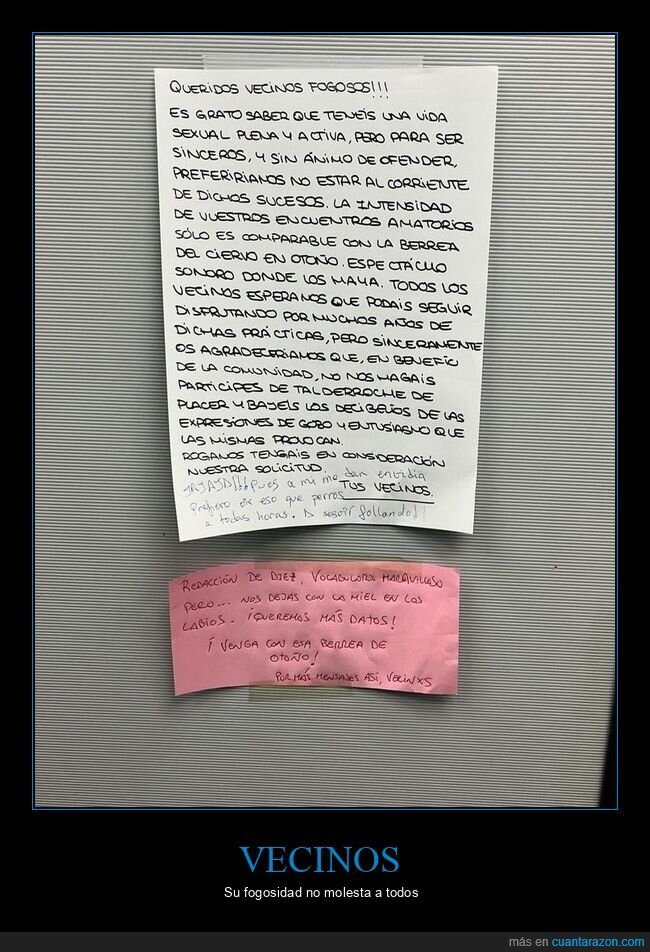 QUERIDOS VECINOS FOGOSOS!!!
ES GRATO SABER QUE TENEÍS UNA VIDA
SEXUAL PLENA Y ACTIVA, PERO PARA SER
SINCEROS, Y SIN ÁNIMO DE OFENDER,
PREFERIRIAMOS NO ESTAR AL CORRIENTE
DE DICHOS SUCESOS. LA INTENSIDAD
DE VUESTROS ENCUENTROS AMATORIOS
SÓLO ES COMPARABLE CON LA BERREA
DEL CIERVO EN OTOÑO. ESPECTÁCULO
SONORO DONDE LOS HAYA. TODOS LOS
VECINOS ESPERAMOS QUE PODAIS SEGUIR
DISFRUTANDO POR MUCHOS AÑOS DE
DICHAS PRÁCTICAS, PERO SINCERAMENTE
OS AGRADECERIAMOS QUE, EN BENEFICIO
DE LA COMUNIDAD, NO NOS HAGAIS
PARTICIPES DE TAL DERROCHE DE
PLACER Y BAJEÍS LOS DECIBELIOS DE LAS
EXPRESIONES DE GOZO Y ENTUSIASMO QUE
LAS MISMAS PROVOCAN.
ROGAMOS TENGAIS EN CONSIDERACIÓN
NUESTRA SOLICITUD.
TUS VECINOS.
JAJAJA!!! Pues a mi me dan envidia
Prefiero oir eso que perros
a todas horas. A seguir follando!!
REDACCIÓN DE DIEZ, VOCABULARIO MARAVILLOSO
PERO... NOS DEJAS CON LA MIEL EN LOS
LABIOS. ¡QUEREMOS MÁS DATOS!
¡VENGA CON ESA BERREA DE
OTOÑO!
POR MÁS MENSAJES ASÍ, VECINXS
VECINOS
Su fogosidad no molesta a todos
más en cuantarazon.com